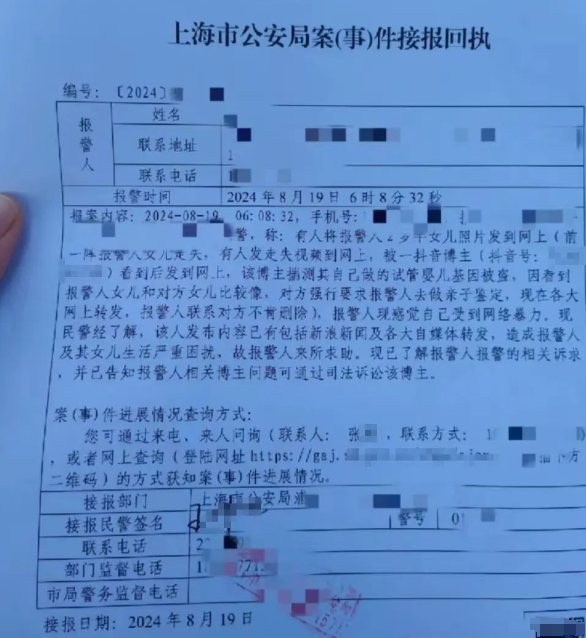 上海市公安局案(事)件接报回执
编号: 〔2024〕
报警人
姓名
联系地址
1
联系电话
报警时间 2024 年 8 月 19 日 6 时 8 分 32 秒
报案内容: 2024-08-19 06:08:32, 手机号:
警, 称: 有人将报警人2多岁女儿照片发到网上(前
一阵报警人女儿走失, 有人发走失视频到网上, 被一抖音博主(抖音号:
)看到后发到网上, 该博主揣测其自己做的试管婴儿基因被盗, 因看到
报警人女儿和对方女儿比较像, 对方强行要求报警人去做亲子鉴定, 现在各大
网上转发, 报警人联系对方不肯删除), 报警人现感觉自己受到网络暴力。现
民警经了解, 该人发布内容已有包括新浪新闻及各大自媒体转发, 造成报警人
及其女儿生活严重困扰, 故报警人来所求助。现已了解报警人报警的相关诉求
, 并已告知报警人相关博主问题可通过司法诉讼该博主。
案(事)件进展情况查询方式:
您可通过来电、来人问询(联系人: 张 , 联系方式: 1
, 或者网上查询(登陆网址https://gaj.s 下方
二维码)的方式获知案(事)件进展情况。
接报部门 上海市公安局浦
接报民警签名 警号 01
联系电话 2
部门监督电话 1 771
市局警务监督电话
接报日期: 2024 年 8 月 19 日